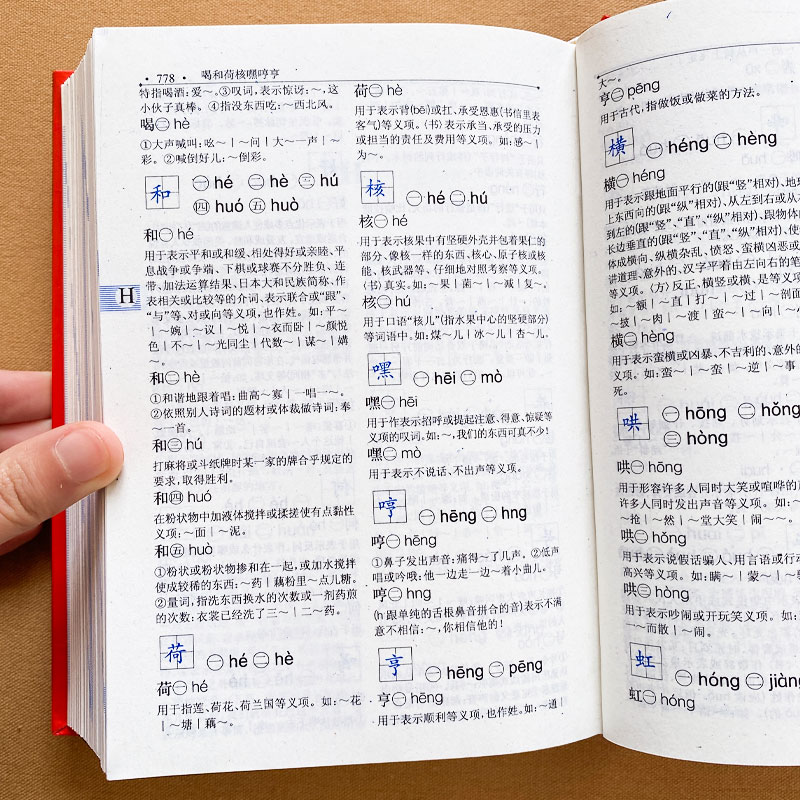 · 778 · 喝和荷核嘿哼亨
特指喝酒:爱～。③叹词,表示惊讶:～,这
小伙子真棒。④指没东西吃:～西北风。
喝㊁ hè
①大声喊叫:吆～|～问|大～一声|～
彩。②喊倒好儿:～倒彩。
和 ㊀ hé ㊁ hè ㊂ hú
㊃ huó ㊄ huò
和㊀ hé
用于表示平和或和缓、相处得好或亲睦、平
息战争或争端、下棋或球赛不分胜负、连
带、加法运算结果、日本大和民族简称、作
表相关或比较等的介词、表示联合或“跟”、
“与”等、对或向等义项,也作姓。如:平～
|～婉|～议|～悦|～衣而卧|～颜悦
色|不～|～光同尘|代数～|谋～|媾
～。
和㊁ hè
①和谐地跟着唱:曲高～寡|一唱一～。
②依照别人诗词的题材或体裁做诗词:奉
～一首。
和㊂ hú
打麻将或斗纸牌时某一家的牌合乎规定的
要求,取得胜利。
和㊃ huó
在粉状物中加液体搅拌或揉搓使有点黏性
义项:～面|～泥。
和㊄ huò
①粉状或粉状物掺和在一起,或加水搅拌
使成较稀的东西:～药|藕粉里～点儿糖。
②量词,指洗东西换水的次数或一剂药煎
的次数:衣裳已经洗了三～|二～药。
荷 ㊀ hé ㊁ hè
荷㊀ hé
用于指莲、荷花、荷兰国等义项。如:～花
|～塘|藕～。
H
荷㊁ hè
用于表示背(bēi)或扛、承受恩惠(书信里表
客气)等义项。(书)表示承当、承受的压力
或担当的责任及费用等义项。如:感～|
为～。
核 ㊀ hé ㊁ hú
核㊀ hé
用于表示核果中有坚硬外壳并包着果仁的
部分、像核一样的东西、核心、原子核或核
能、核武器等、仔细地对照考察等义项。
(书)真实。如:～果|菌～|～减|复～。
核㊁ hú
用于口语“核儿”(指水果中心的坚硬部分)
等词语中。如:煤～儿|冰～儿|杏～儿。
嘿 ㊀ hēi ㊁ mò
嘿㊀ hēi
用于作表示招呼或提起注意、得意、惊疑等
义项的叹词。如:～,我们的东西可真不少!
嘿㊁ mò
用于表示不说话、不出声等义项。
哼 ㊀ hēng ㊁ hng
哼㊀ hēng
①鼻子发出声音:痛得～了几声。②低声
唱或吟哦:他一边走一边～着小曲儿。
哼㊁ hng
(h跟单纯的舌根鼻音拼合的音)表示不满
意不相信:～,你相信他的!
亨 ㊀ hēng ㊁ pēng
亨㊀ hēng
用于表示顺利等义项,也作姓。如:～通|
大～。
亨㊁ pēng
用于古代,指做饭或做菜的方法。
横 ㊀ héng ㊁ hèng
横㊀ héng
用于表示跟地面平行的(跟“竖”相对)、地球
上东西向的(跟“纵”相对)、从左到右或从右
到左的(跟“竖”、“直”、“纵”相对)、跟物体的
长边垂直的(跟“竖”、“直”、“纵”相对)、使物
体成横向、纵横杂乱、愤怒、蛮横凶恶或
讲道理、意外的、汉字平着由左向右的笔
等义项。(方)反正、横竖或横,是等义项。
如:～额|～直|打～|～过|～剖面
～披|～肉|～渡|蛮～|～向|～
横㊁ hèng
用于表示蛮横或凶暴、不吉利的、意外的
义项。如:蛮～|～蛮|～逆|～事
死。
哄 ㊀ hōng ㊁ hǒng
㊂ hòng
哄㊀ hōng
用于形容许多人同时大笑或喧哗的声
许多人同时发出声音等义项。如:～
～抢|～然|～堂大笑|闹～～。
哄㊁ hǒng
用于表示说假话骗人、用言语或行动
高兴等义项。如:瞒～|蒙～|～
哄㊂ hòng
用于表示吵闹或开玩笑义项。如:
～而散|～闹。
虹 ㊀ hóng ㊁ jiàng
虹㊀ hóng